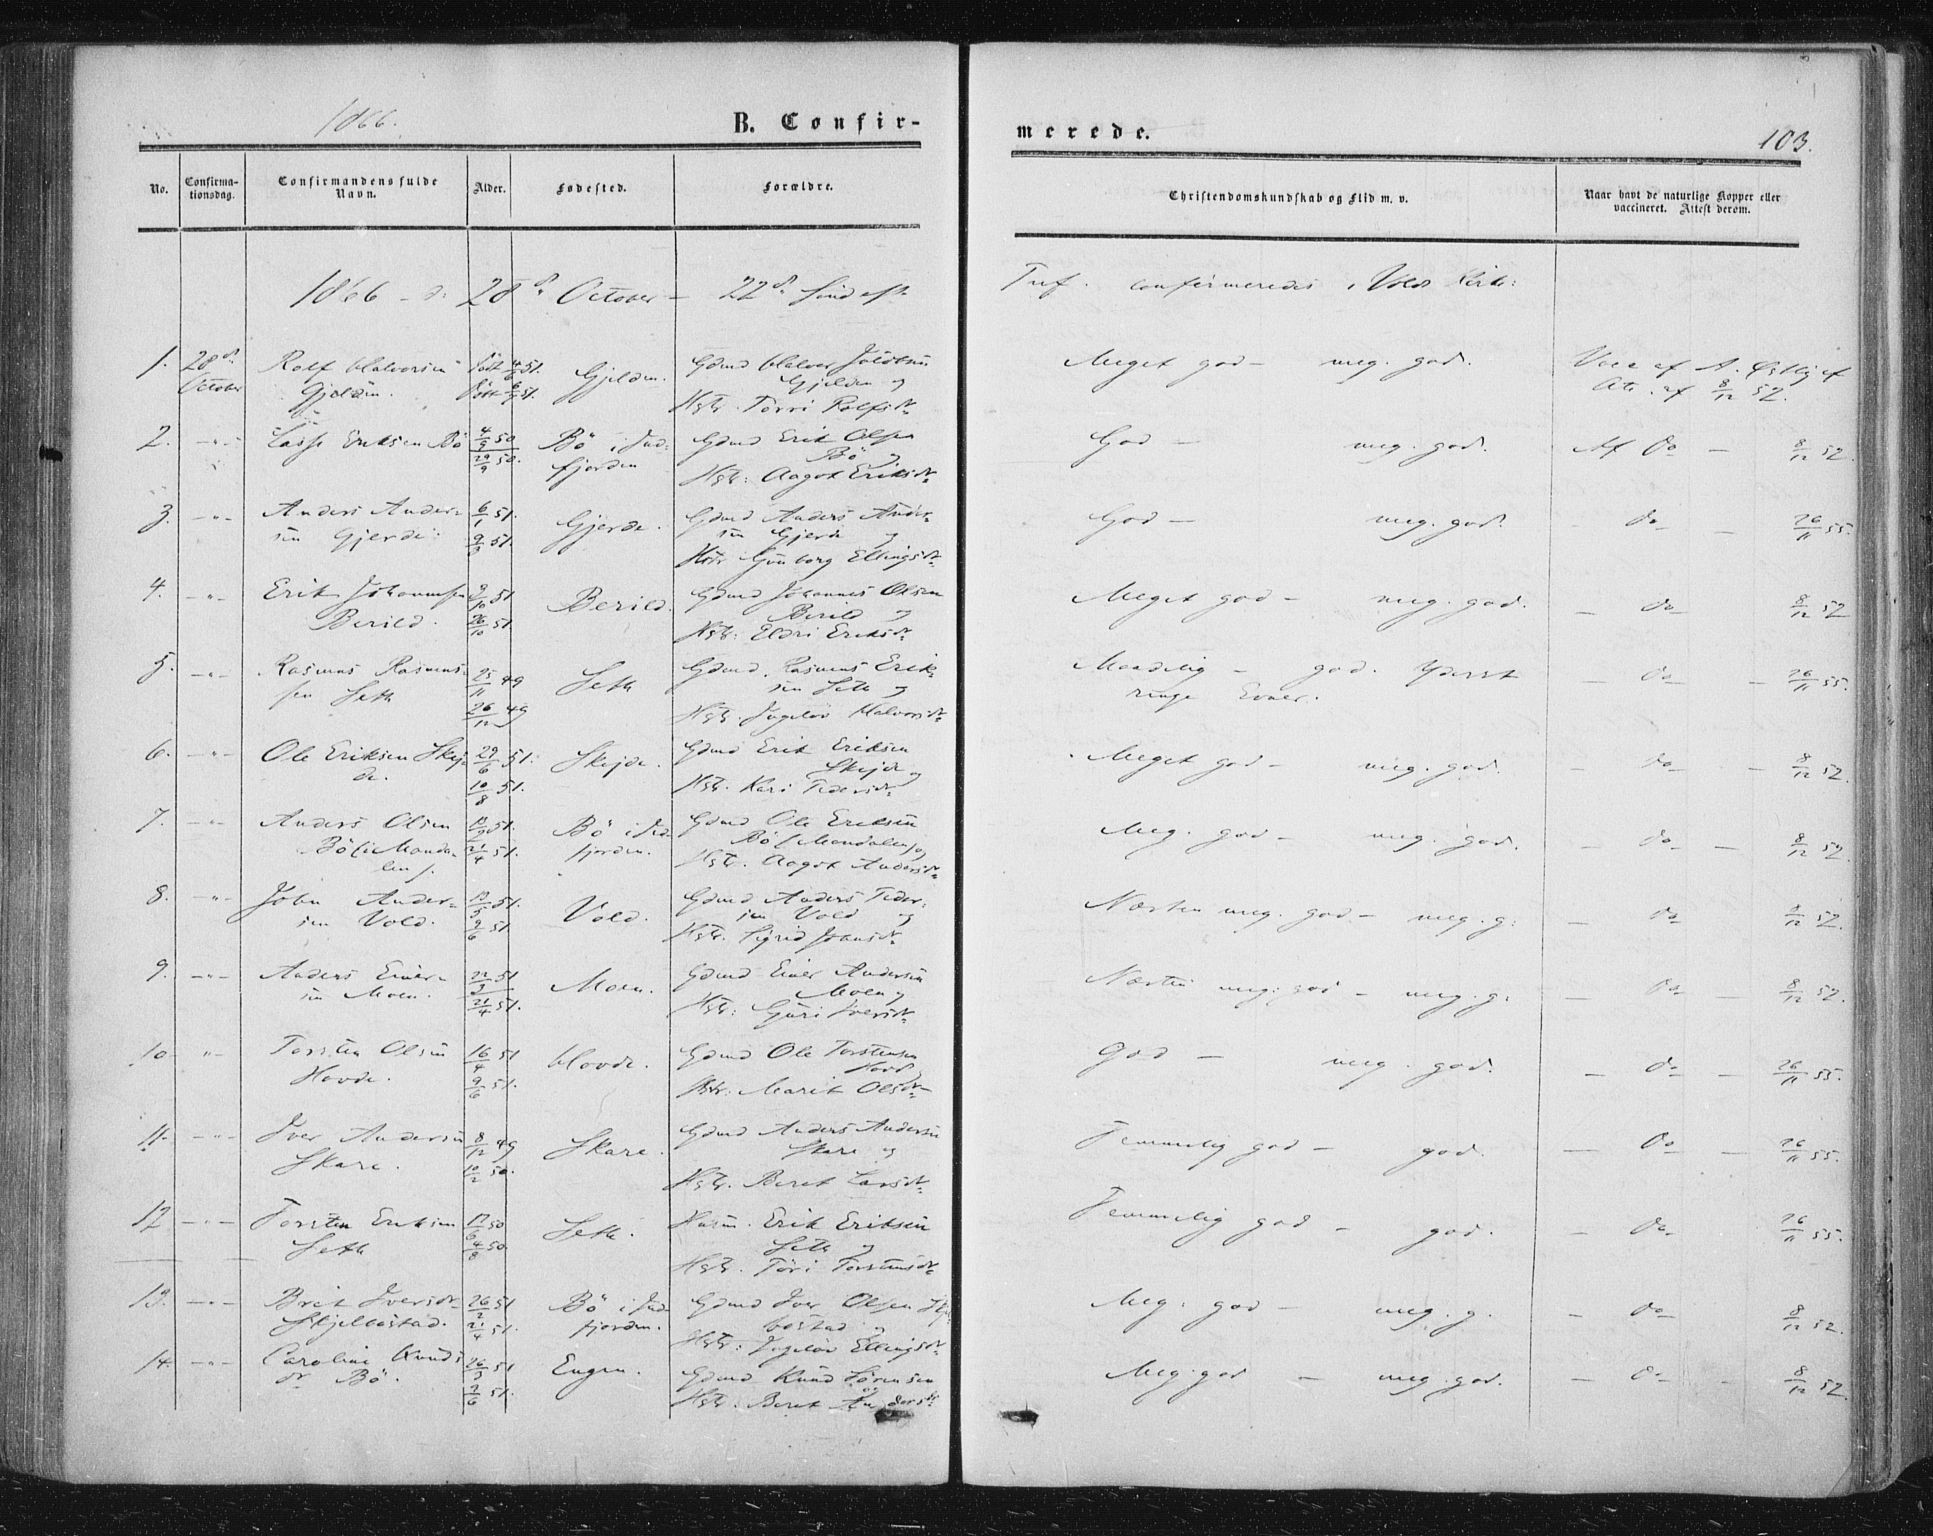 1866.
B. Confir-
merede.
103.
No.
Confirma-
tionsdag.
Confirmandens fulde
Navn.
Alder.
Fødested.
Forældre.
Christendomskundskab og Flid m. v.
Naar havt de naturlige Kopper eller
vaccineret. Attest derom.
1866 - d: 28d October - 22d Sønd eft
Tref. confirmeredes i Vold Kirk:
1. 28d
October
Rolf Halvorsen
Gjelden.
51.
51.
Gjelden.
Gdmd Halvor
Gjelden og
Hstr. Torri Rolfsdtr
Meget god - meg. god.
Vacc af A. Østby ef
Att. af 8/12 52.
2. -"- Lasse Eriksen Bö
4/9 50
29/9 50.
Bö i Ind-
fjorden
Gdmd Erik Olsen
Bö og
Hstr: Aagot Eriksdtr
God - meg. god.
Af do - 8/12 52.
3. -"- Anders Ander-
sen Gjerde.
6/1 51.
9/3 51.
Gjerde.
Gdmd Anders Ander-
sen Gjerde og
Hstr Gunborg Ellingsdtr
God - meg. god.
- do - 26/11 55.
4. -"- Erik Johannessen
Berild.
9/10 51
26/10 51
Berild.
Gdmd Johannes Olsen
Berild og
Hstr: Eldri Eriksdtr
Meget god - meg. god.
- do - 8/12 52
5. -"- Rasmus Rasmus-
sen Seth
25/11 49
26/12 49
Seth
Gdmd. Rasmus Erik-
sen Seth og
Hstr. Ingeløv Halvorsdtr
Maadelig - god. Yderst
ringe Evner.
- do - 26/11 55.
6. -"- Ole Eriksen Skej-
de.
29/6 51.
10/8 51.
Skejde.
Gdmd Erik Eriksen
Skejde og
Hstr. Kari Pedersdtr
Meget god - meg. god.
- do - 8/12 52.
7. -"- Anders Olsen
Bö (i Manda-
len).
51.
21/4 51.
Bö i Ind-
fjorden.
Gdmd Ole Eriksen
Bö (Mandalen) og
Hstr. Aagot Andersdtr
Meg. god - meg. god.
- do - 8/12 52.
8. -"- John Ander-
sen Vold.
51.
2/6 51
Vold.
Gdmd Anders Peder-
sen Vold og
Hstr. Sigrid Johnsdtr
Næsten meg. god - meg. g.
- do 8/12 52.
9. -"- Anders Einer-
sen Moen.
22/3 51
21/4 51.
Moen.
Gdmd Einer Andersen
Moen og
Hstr: Guri Iversdtr
Næsten meg. god - meg. g.
- do - 8/12 52.
10. -"- Torsten Olsen
Hovde.
16/4 51
9/6 51.
Hovde.
Gdmd Ole Torstensen
Hovd
Hstr: Marit Olsdtr
God - meg. god.
- do - 26/11 55.
11. -"- Iver Andersen
Skare.
8/12 49
10/2 50.
Skare.
Gdmd Anders Andersen
Skare og
Hstr. Beret Larsdtr
Temmelig god - god.
- do - 26/11 55.
12 -"- Torsten Eriksen
Seth
50
4/8 50.
Seth.
Husm. Erik Eriksen
Seth og
Hstr. Töri Torstensdtr
Temmelig god - god.
- do - 26/11 55.
13. -"- Brit Iversdtr
Skjelbostad.
26/2 51
21/4 51.
Bö i Ind-
fjorden.
Gdmd Iver Olsen Skjel-
bostad og
Hstr: Ingeløv Ellingsdtr
Meg. god - meg. g.
- do - 8/12 52.
14. -"- Caroline Knuds-
dr Bö.
26/3 51
2/6 51.
Engen.
Gdmd Knud Sörensen
Hstr: Beret Andersdtr
Meg. god - meg. god.
- do - 8/12 52.